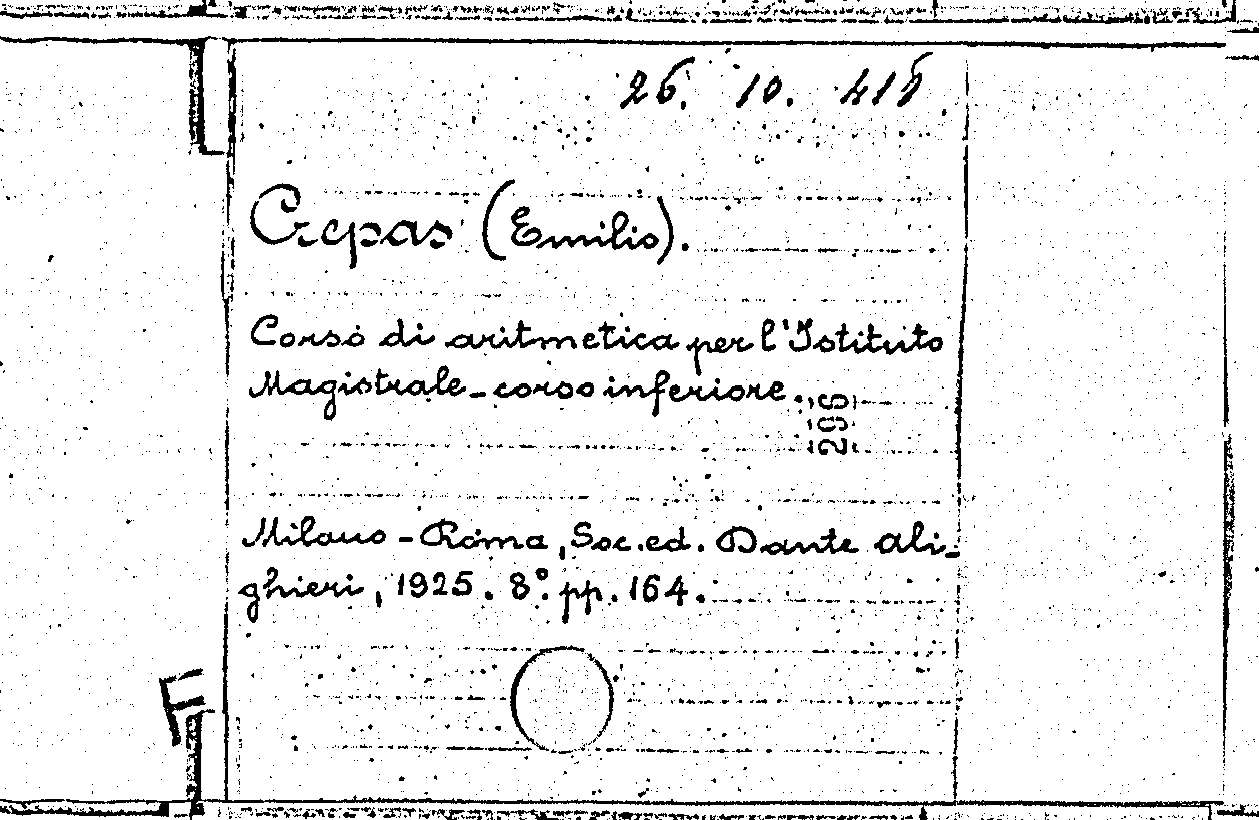 26. 10. 418
Crepas (Emilio).
Corso di aritmetica per l'Istituto
Magistrale - corso inferiore.
296
Milano - Roma, Soc. ed. Dante Ali-
ghieri, 1925. 8º. pp. 164.
F